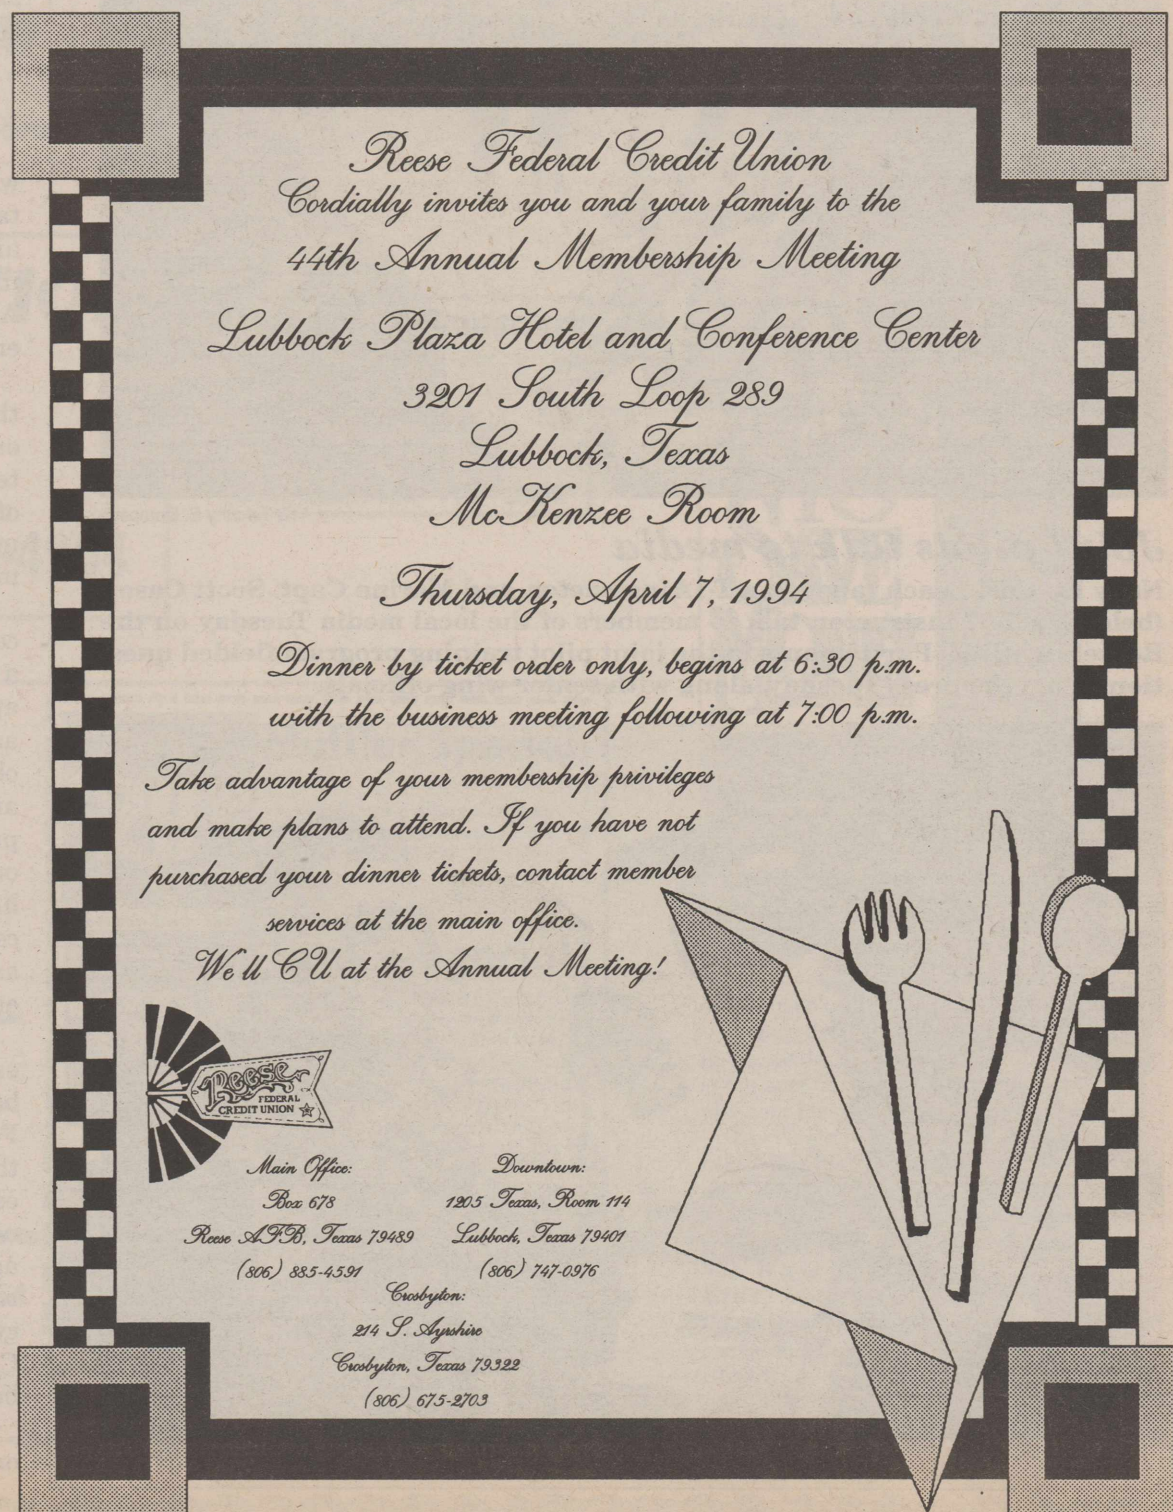 Reese Federal Credit Union
Cordially invites you and your family to the
44th Annual Membership Meeting
Lubbock Plaza Hotel and Conference Center
3201 South Loop 289
Lubbock, Texas
McKenzee Room
Thursday, April 7, 1994
Dinner by ticket order only, begins at 6:30 p.m.
with the business meeting following at 7:00 p.m.
Take advantage of your membership privileges
and make plans to attend. If you have not
purchased your dinner tickets, contact member
services at the main office.
We'll C U at the Annual Meeting!
Reese
FEDERAL
CREDIT UNION
Main Office:
Box 678
Reese AFB, Texas 79489
(806) 885-4591
Downtown:
1205 Texas, Room 114
Lubbock, Texas 79401
(806) 747-0976
Crosbyton:
214 S. Ayrshire
Crosbyton, Texas 79322
(806) 675-2703